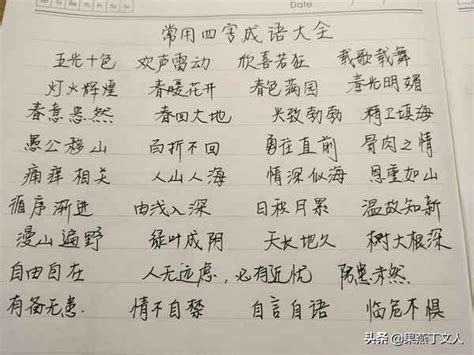 Date
常用四字成语大全
五光十色 欢声雷动 欣喜若狂 载歌载舞
灯火辉煌 春暖花开 春色满园 春光明媚
春意盎然 春回大地 兴致勃勃 精卫填海
愚公移山 百折不回 勇往直前 骨肉之情
痛痒相关 人山人海 情深似海 恩重如山
循序渐进 由浅入深 日积月累 温故知新
漫山遍野 绿叶成阴 天长地久 树大根深
自由自在 人无远虑,必有近忧 防患未然
有备无患. 情不自禁 自言自语 临危不惧
头条 @果燕丁文人